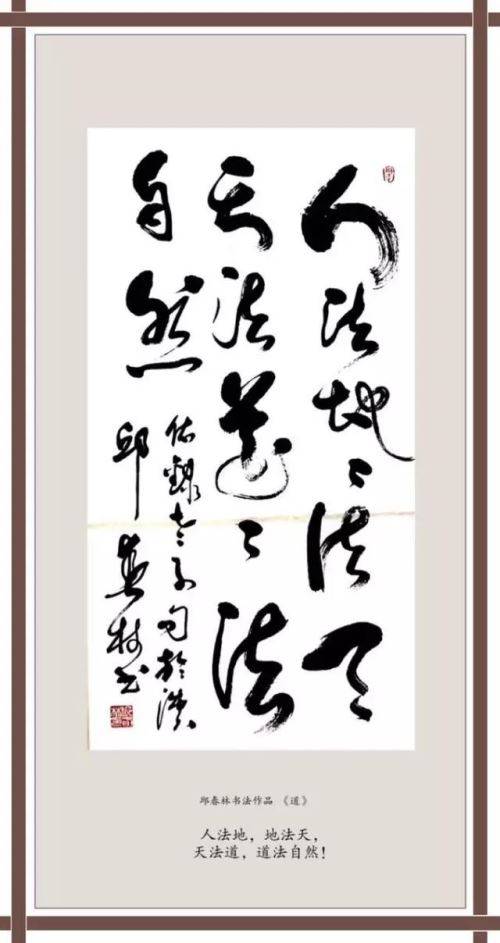 人法地〻法天
天法道〻法
自然
錄老子句於
邱春林书
邱春林书法作品 《道》
人法地，地法天，
天法道，道法自然！